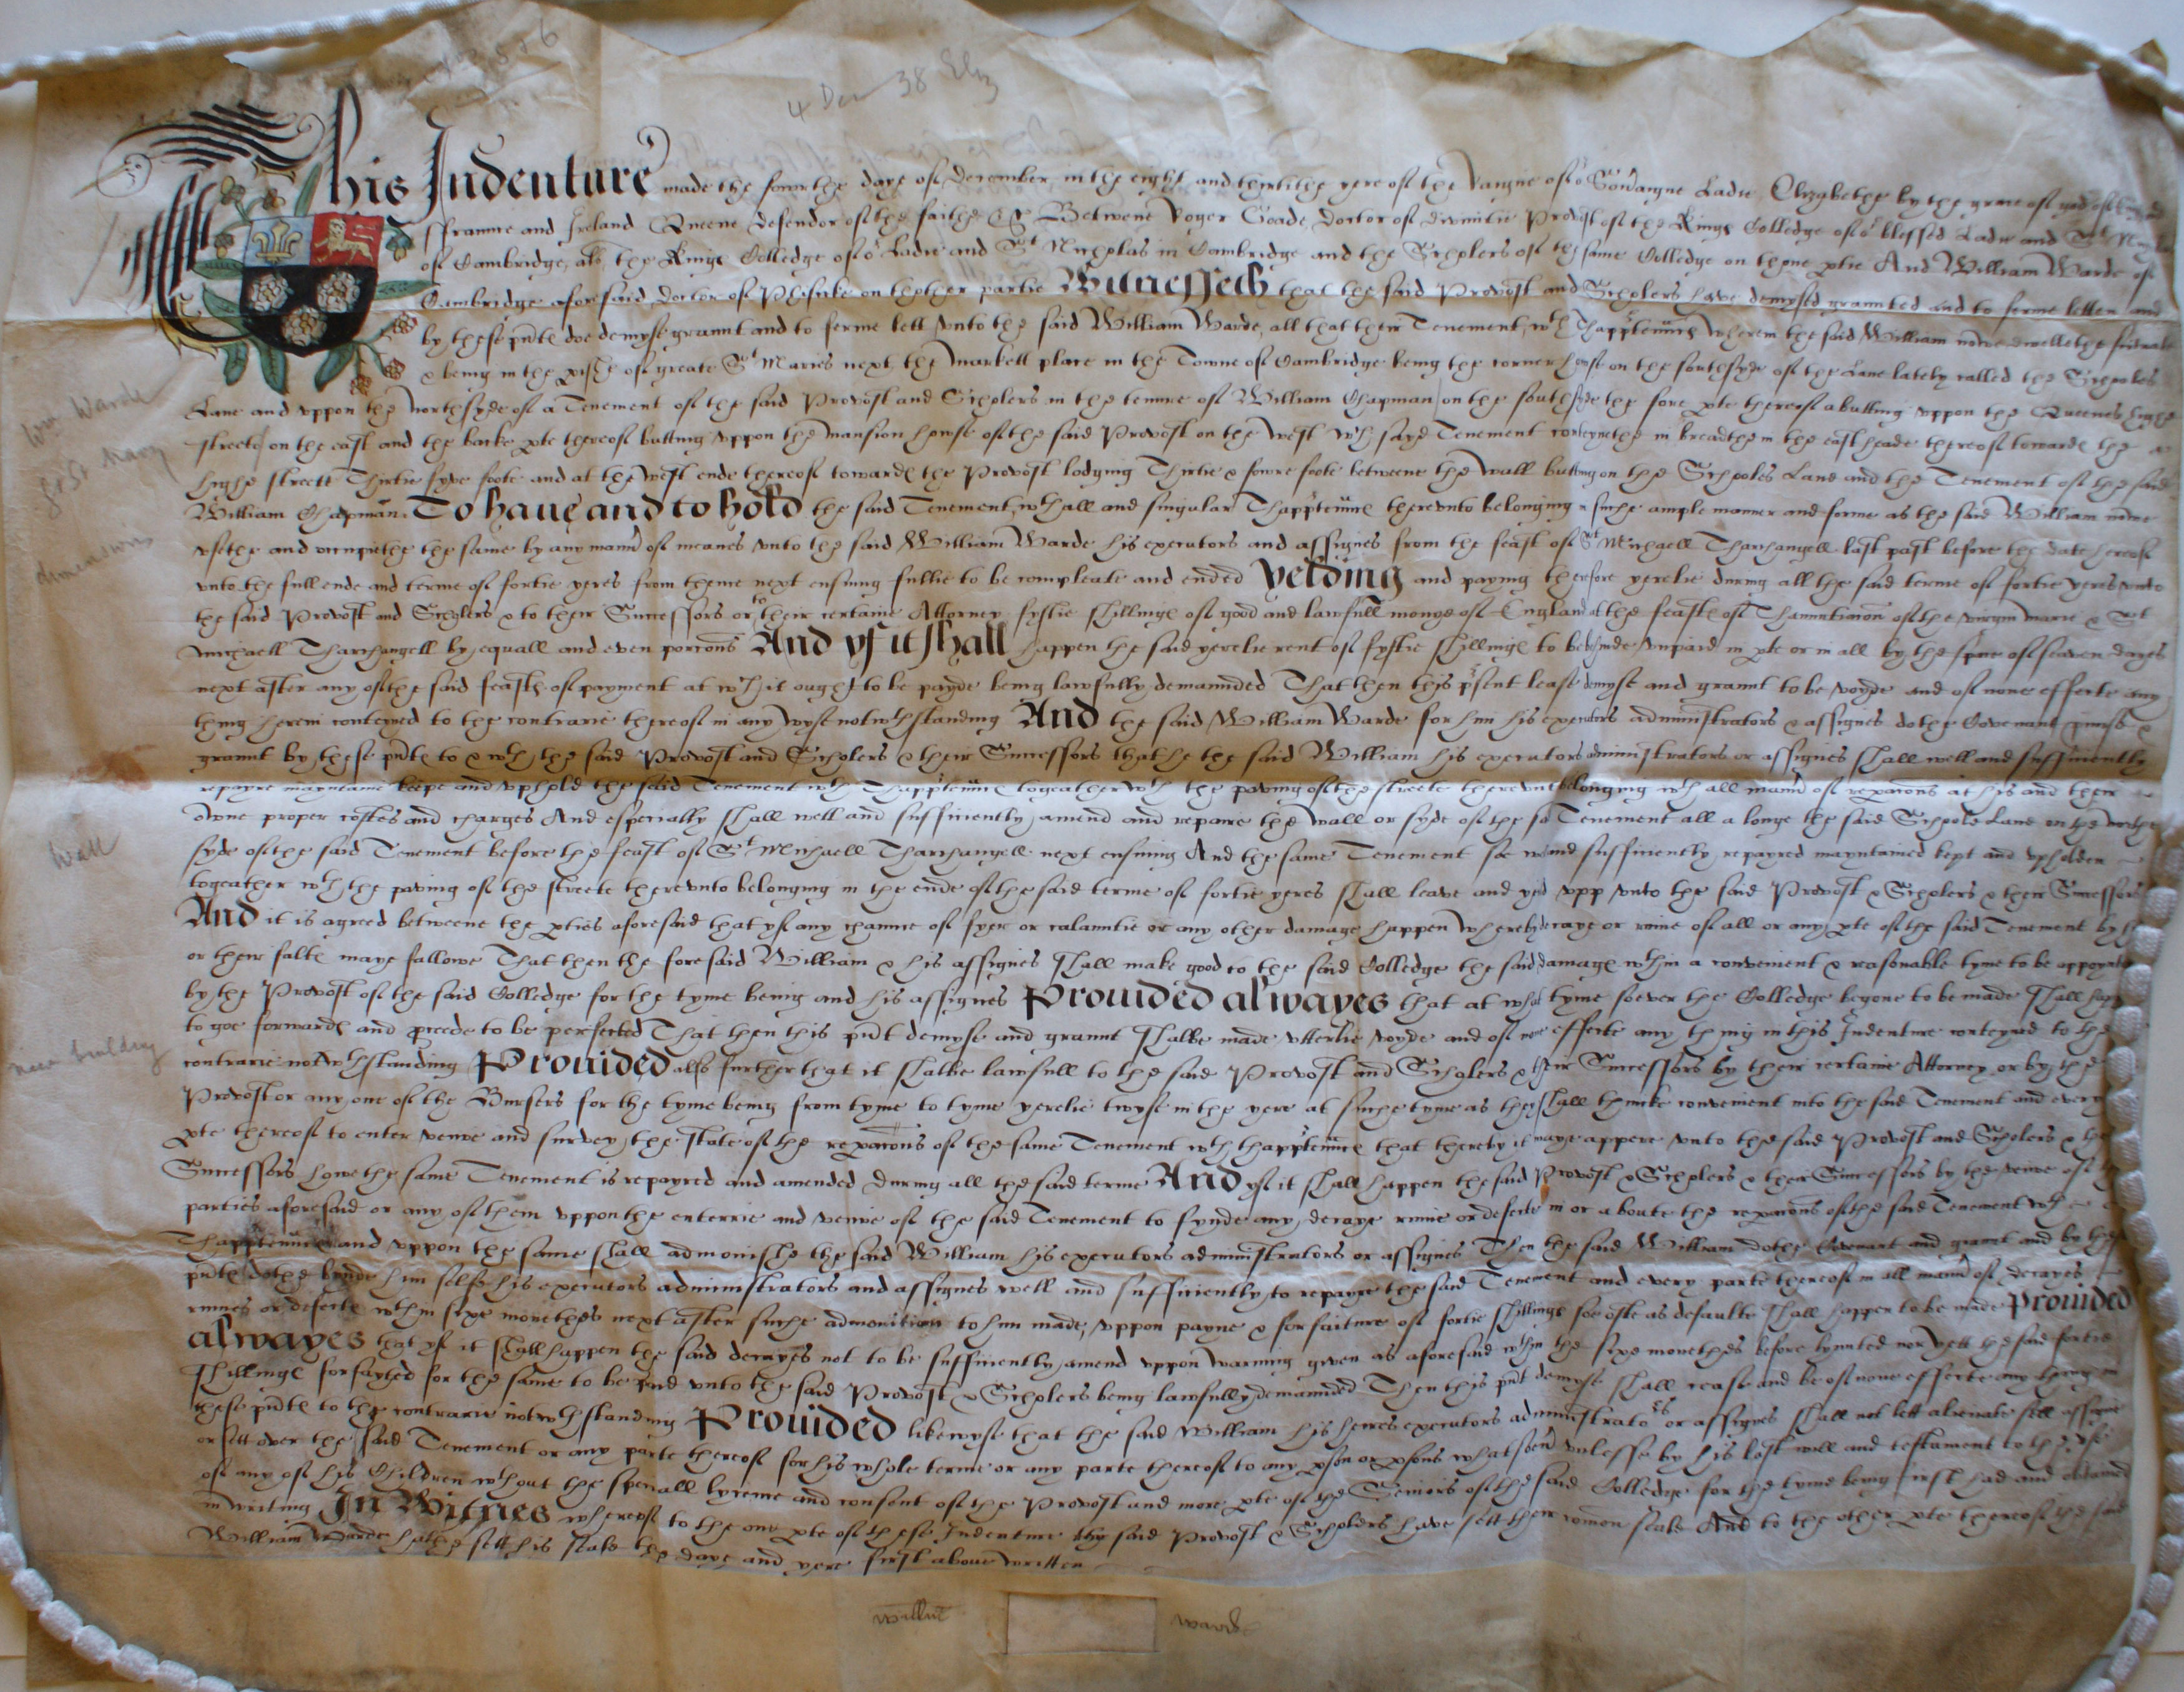 4 Dec 38 Eliz
This Indenture made the fowrthe daye of December in the eight and thirtithe yere of the Raigne of oʳ Soūaigne Ladie Elizabethe by the grace of god of England
ffraunce and Ireland Queene defendor of the faithe &c Betwene Roger Goade Doctor of divinitie Provost of the Kings Colledge of oʳ blessed Ladie and Sᵗ Nicholas
of Cambridge, als the Kings Colledge of oʳ Ladie and Sᵗ Nicholas in Cambridge and the Scholers of the same Colledge on thone ptie And William Warde of
Cambridge aforesaid Doctor of Phisicke on thother partie Witnesseth that the said Provost and Scholers have demysed graunted and to ferme letten and
by these pñts doe demyse graunt and to ferme lett vnto the said William Warde, all that their Tenement wᵗʰ Thapptenñcs wherein the said William nowe dwellethe scituate
& being in the pishe of greate Sᵗ Maries next the Markett place in the Towne of Cambridge being the corner howse on the southsyde of the Lane lately called the Scholes
Lane and vppon the Northsyde of a Tenement of the said Provost and Scholers in the tenure of William Chapman on the southsyde the fore pte thereof abutting vppon the Queenes highe
streete on the east and the backe pte thereof butting vppon the mansion howse of the said Provost on the west wᶜʰ sayd Tenement conteynethe in breadthe in the east heade thereof towards the
highe streett Thirtie fyve foote and at the west ende thereof towards the Provost lodging Thirtie & fowre foote betweene the wall butting on the Scholes Lane and the Tenement of the said
William Chapman. To haue and to hold the said Tenement wᵗʰ all and singular Thapptenñcs therevnto belonging in suche ample manner and forme as the said William nowe
vsethe and occupiethe the same by any manñ of meanes vnto the said William Warde his executors and assignes from the feast of Sᵗ Michaell Tharchangell last past before the date hereof
vnto the full ende and terme of fortie yeres from thence next ensuing fullie to be compleate and ended Yelding and paying therefore yerelie during all the said terme of fortie yeres vnto
the said Provost and Scholers & to their Successors or to their certaine Attorney fystie shillings of good and lawfull money of England at the feasts of Thannuntiacion of the virgin Marie & Sᵗ
Michaell Tharchangell by equall and even porcons And yf it shall happen the said yerelie rent of fystie shillings to be behinde vnpaid in pte or in all by the space of seaven dayes
next after any of the said feasts of payment at wᶜʰ it ought to be payde being lawfully demaunded That then this pñsent lease demyse and graunt to be voyde and of none effecte any
thing herein conteyned to the contrarie thereof in any wyse notwᵗʰstanding And the said William Warde for him his executors administrators & assignes dothe Covenant pmise &
graunt by these pñts to & wᵗʰ the said Provost and Scholers & their Successors that he the said William his executors administrators or assignes shall well and sufficiently
repayre maynteine keepe and vphold the said Tenement wᵗʰ Thapptenñcs togeather wᵗʰ the paving of the streete therevnto belonging wᵗʰ all manñ of repacons at his and their
owne proper costes and charges And especially shall well and sufficiently amend and repaire the wall or syde of the sd Tenement all a longe the said Schole Lane on the northe
syde of the said Tenement before the feast of Sᵗ Michaell Tharchangell next ensuing And the same Tenement soe well and sufficiently repayred mayntained kept and vpholden
togeather wᵗʰ the paving of the streete therevnto belonging in the ende of the said terme of fortie yeres shall leave and yeld vpp vnto the said Provost & Scholers & their Successors
And it is agreed betweene the pties aforesaid that yf any chaunce of fyer or calamitie or any other damage happen whereby decaye or ruine of all or any pte of the said Tenement by his
or their falts maye followe That then the foresaid William & his assignes shall make good to the said Colledge the said damage wᵗʰin a convenient & reasonable tyme to be appoynted
by the Provost of the said Colledge for the tyme being and his assignes Prouided alwayes that at what tyme soever the Colledge begone to be made shall happen
to goe forwards and pceede to be perfected That then this pñt demyse and graunt shalbe made vtterlie voyde and of none effecte any thing in this Indenture conteyned to the
contrarie notwᵗʰstanding Prouided also further that it shalbe lawfull to the said Provost and Scholers & their Successors by their certaine Attorney or by the
Provost or any one of the Bursers for the tyme being from tyme to tyme yerelie twyse in the yere at suche tyme as they shall thincke convenient into the said Tenement and every
pte thereof to enter vewe and survey the state of the repacons of the same Tenement wᵗʰ thapptenñcs that thereby it maye appere vnto the said Provost and Scholers & their
Successors howe the same Tenement is repayred and amended during all the said terme And yf it shall happen the said Provost & Scholers & their Successors by the vewe of the
parties aforesaid or any of them vppon the enterrie and vewe of the said Tenement to fynde any decaye ruine or defecte in or aboute the repacons of the said Tenement wᵗʰ
Thapptenñcs and vppon the same shall admonishe the said William his executors administrators or assignes Then the said William dothe Covenant and graunt and by these
pñts dothe bynde him selfe his executors administrators and assignes well and sufficiently to repayre the said Tenement and every parte thereof in all manñ of decayes
ruines or defects wᵗʰin sixe monethes next after suche admonition to him made, vppon payne & forfaiture of fortie shillings soe ofte as defaulte shall happen to be made Prouided
alwayes that yf it shall happen the said decayes not to be sufficiently amend vppon warning given as aforesaid wᵗʰin the sixe monethes before lymited nor yett the said fortie
shillings forfayted for the same to be paid vnto the said Provost & Scholers being lawfully demaunded Then this pñt demyse shall cease and be of none effecte any thing in
these pñts to the contrarie notwᵗʰstanding Prouided likewyse that the said William his heires executors administratoʳˢ or assignes shall not lett alienate sell assigne
or sett over the said Tenement or any parte thereof for his whole terme or any parte thereof to any pson or psons whatsoeū vnlesse by his last will and testament to the vse
of any of his Children wᵗʰout the speciall lycence and consent of the Provost and more pte of the Seniors of the said Colledge for the tyme being first had and obtained
in writing In Witnes whereof to the one pte of these Indenture the said Provost & Scholers have sett their comon seale And to the other pte thereof the said
William Warde hathe sett his seale the daye and yere first above written
Wm Warde
Gt St Mary
dimensions
wall
new building
willm̄ warde